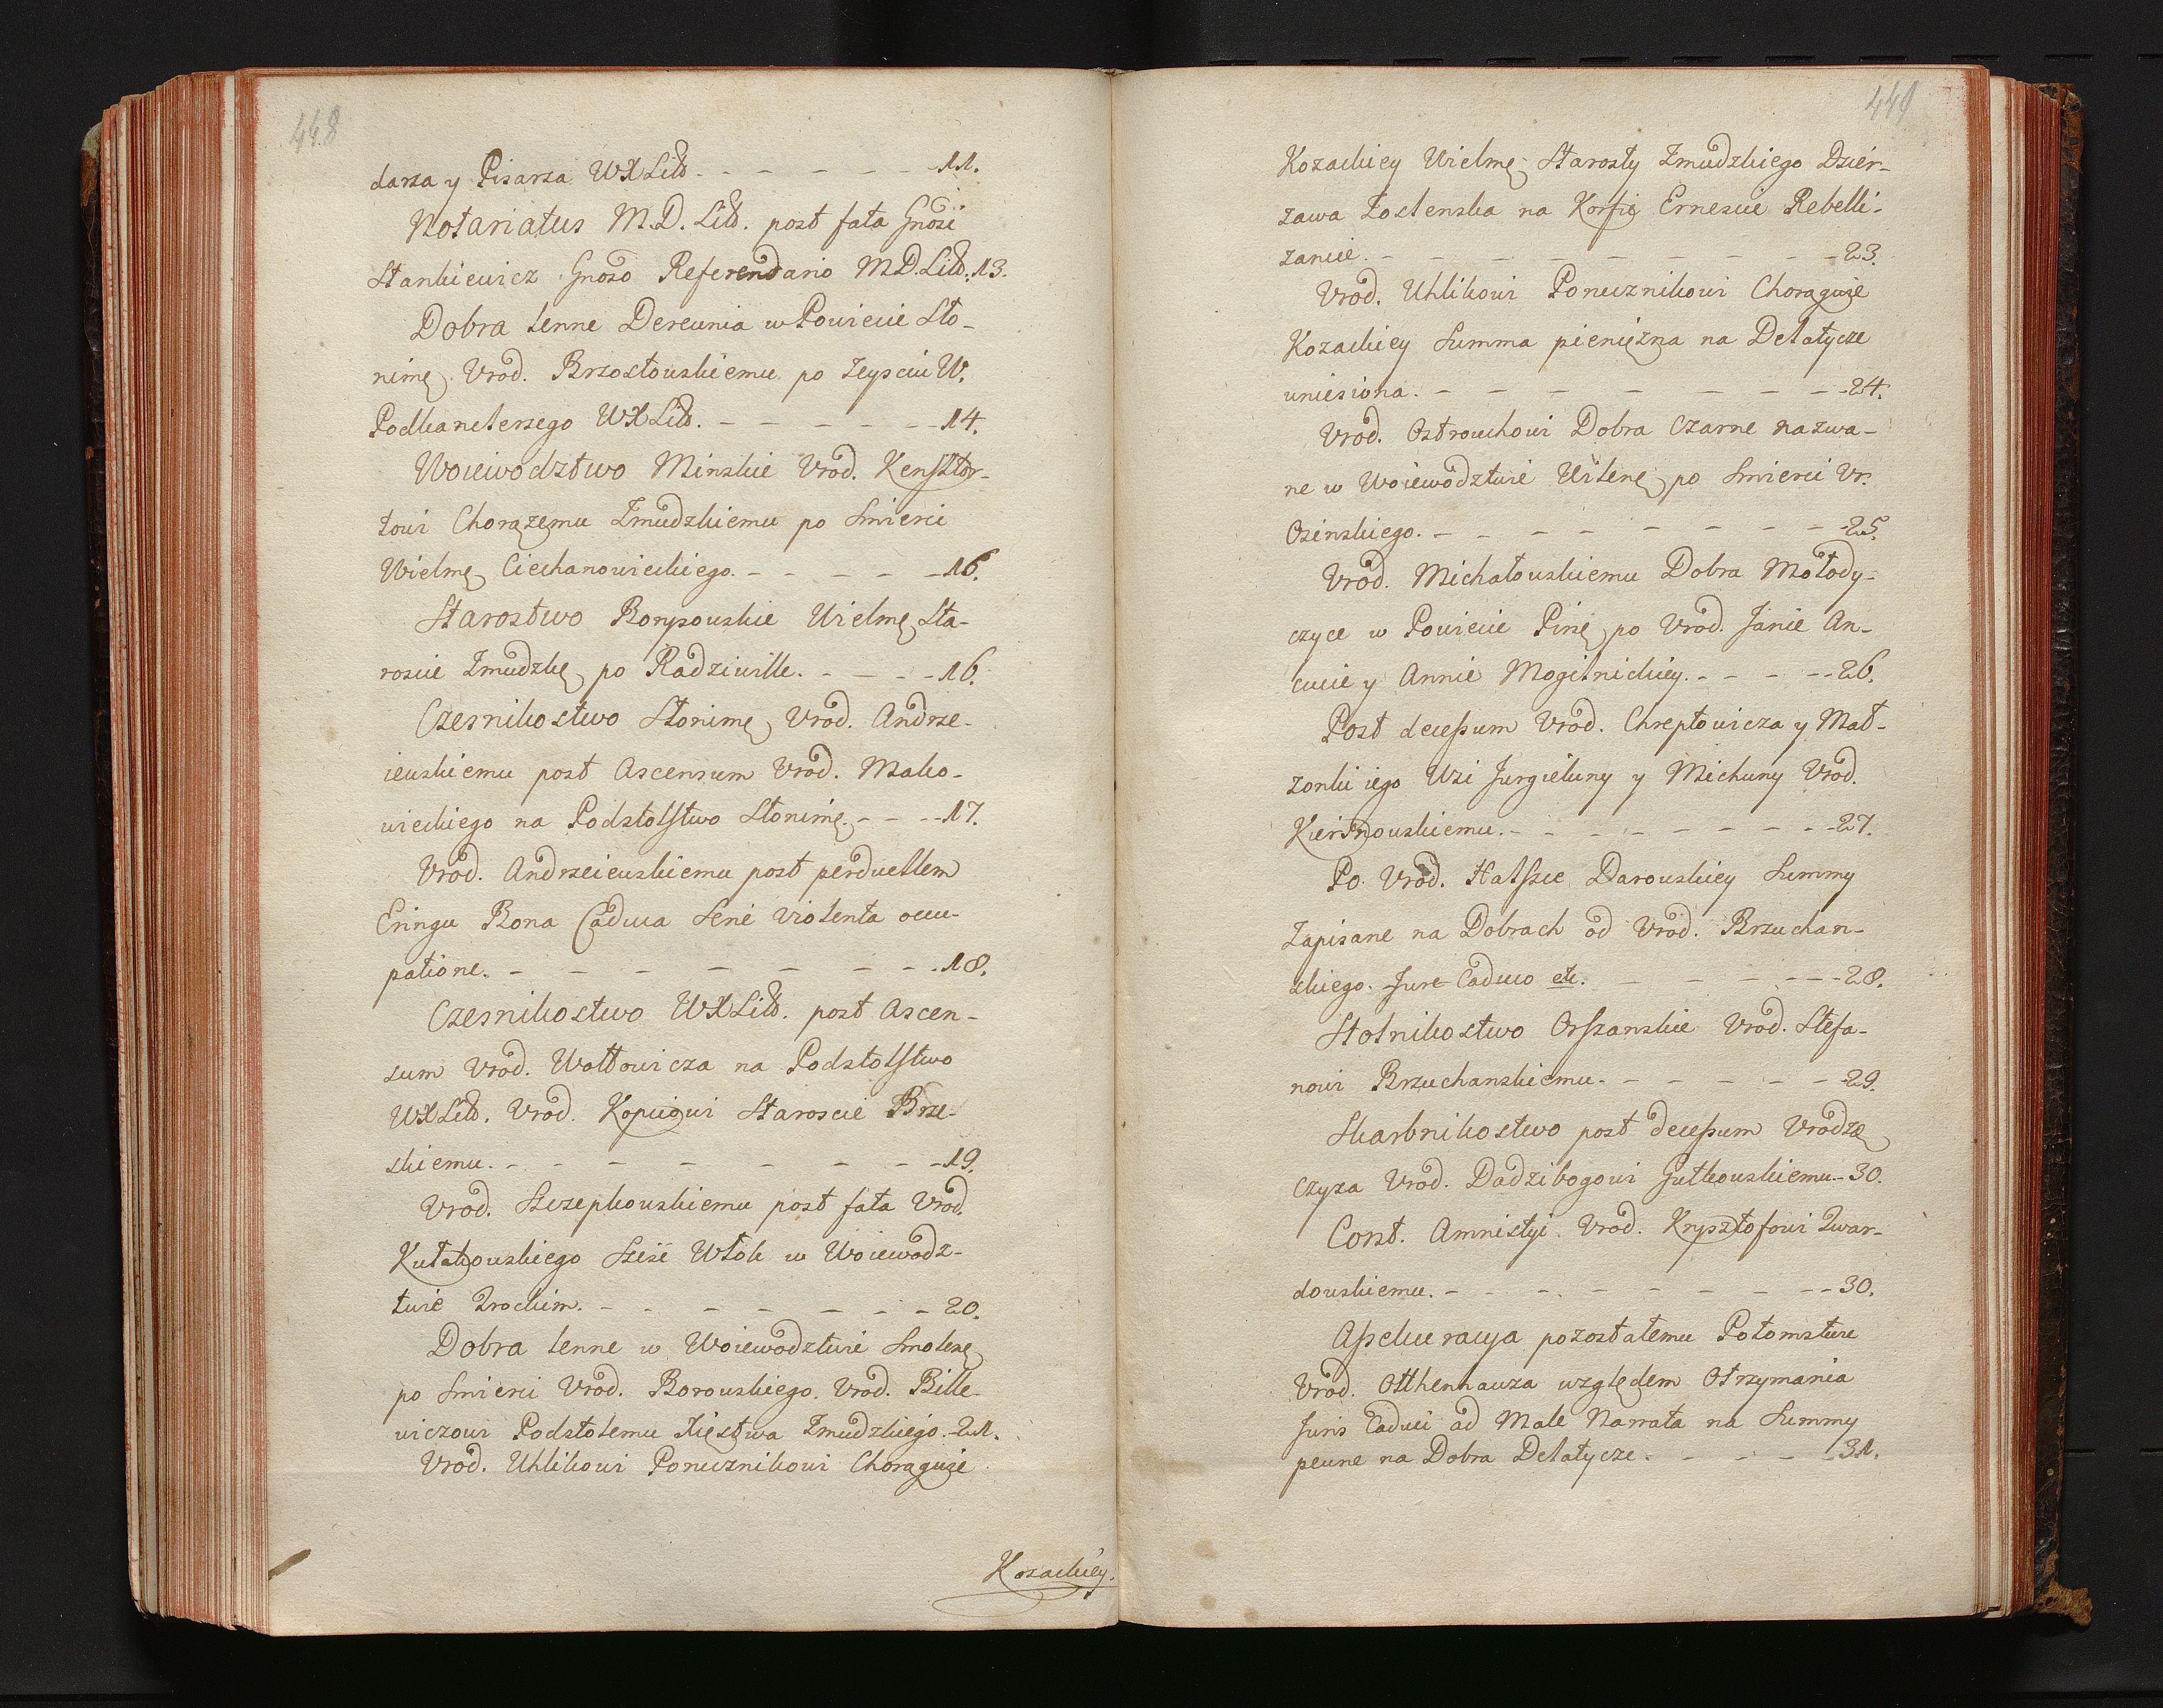 448
darza y Pisarza WXLitt. - - - - - - 11.
Notariatus M.D. Litt. post fata Gnosi
Stankiewicz Gnoso Referendario MD.Litt. 13.
Dobra lenne Derewnia w Powiecie Sło-
nimę. Vrod. Brzostowskiemu po Zeysciu W.
Podkanclerzego WXLitt. - - - - - - 14.
Woiewodztwo Minskie Vrod. Kensztor-
towi Chorązemu Zmudzkiemu po Smierci
Wielmę Ciechanowieckiego. - - - - - 16.
Starostwo Borysowskie Wielmę Sta-
roscie Zmudzkę po Radziwille. - - - - 16.
Czesnikostwo Słonimę Vrod. Andrze-
iewskiemu post Ascensum Vrod. Mako-
wieckiego na Podstolstwo Słonimę. - - - 17.
Vrod. Andrzeiewskiemu post perduellem
Eringu Bona Caduca Sené violenta occu-
patione. - - - - - - - - 18.
Czesnikostwo WXLitt. post Ascen-
sum Vrod. Wołłowicza na Podstolstwo
WXLitt. Vrod. Kopciowi Staroscie Brze-
skiemu. - - - - - - - - 19.
Vrod. Szczepkowskiemu post fata Vrod.
Kułakowskiego Szesć Włok w Woiewodz-
twie Trockim. - - - - - - - 20.
Dobra lenne w Woiewodztwie Smolenę
po Smierci Vrod. Borowskiego. Vrod. Bille-
wiczowi Podstolemu Xięstwa Zmudzkiego. - 21.
Vrod. Uhlikowi Porucznikowi Chorągwie
Kozackiey.
449
Kozackiey Wielmę Starosty Zmudzkiego Dzier-
zawa Łostenska na Korfię Ernescie Rebelli-
zancie. - - - - - - - - - 23.
Vrod. Uhlikowi Porucznikowi Chorągwie
Kozackiey Summa pieniężna na Delatycze
wniesiona. - - - - - - - - - 24.
Vrod. Ostrowchowi Dobra Czarne nazwa-
ne w Woiewodztwie Wilenę po Smierci Vr.
Osinskiego. - - - - - - - - - 25.
Vrod. Michałowskiemu Dobra Mołody-
czyce w Powiecie Pinę po Vrod. Janie An-
cucie y Annie Mogilnickiey. - - - - - 26.
Post decessum Vrod. Chreptowicza y Mał-
zonki iego Wsi Jurgieluny y Michuny Vrod.
Kiersnowskiemu. - - - - - - - - 27.
Po Vrod. Halszce Darowskiey Summy
Zapisane na Dobrach od Vrod. Brzuchan-
skiego. Jure Caduco etc. - - - - - - 28.
Stolnikostwo Orszanskie Vrod. Stefa-
nowi Brzuchanskiemu. - - - - - - 29.
Skarbnikostwo post decessum Vrodzę
Czyza Vrod. Dadzibogowi Gutkowskiemu. - 30.
Const. Amnistyi. Vrod. Krysztofowi Twar-
dowskiemu. - - - - - - - - 30.
Assekuracya pozostałemu Potomstwu
Vrod. Otthenhauza względem Otrzymania
Juris Caduci ad Male Narrata na Summy
pewne na Dobra Delatycze. - - - - 31.